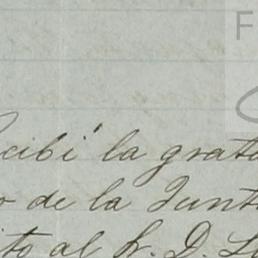 F
recibí la grata
o de la Junta
ito al Sr. D.